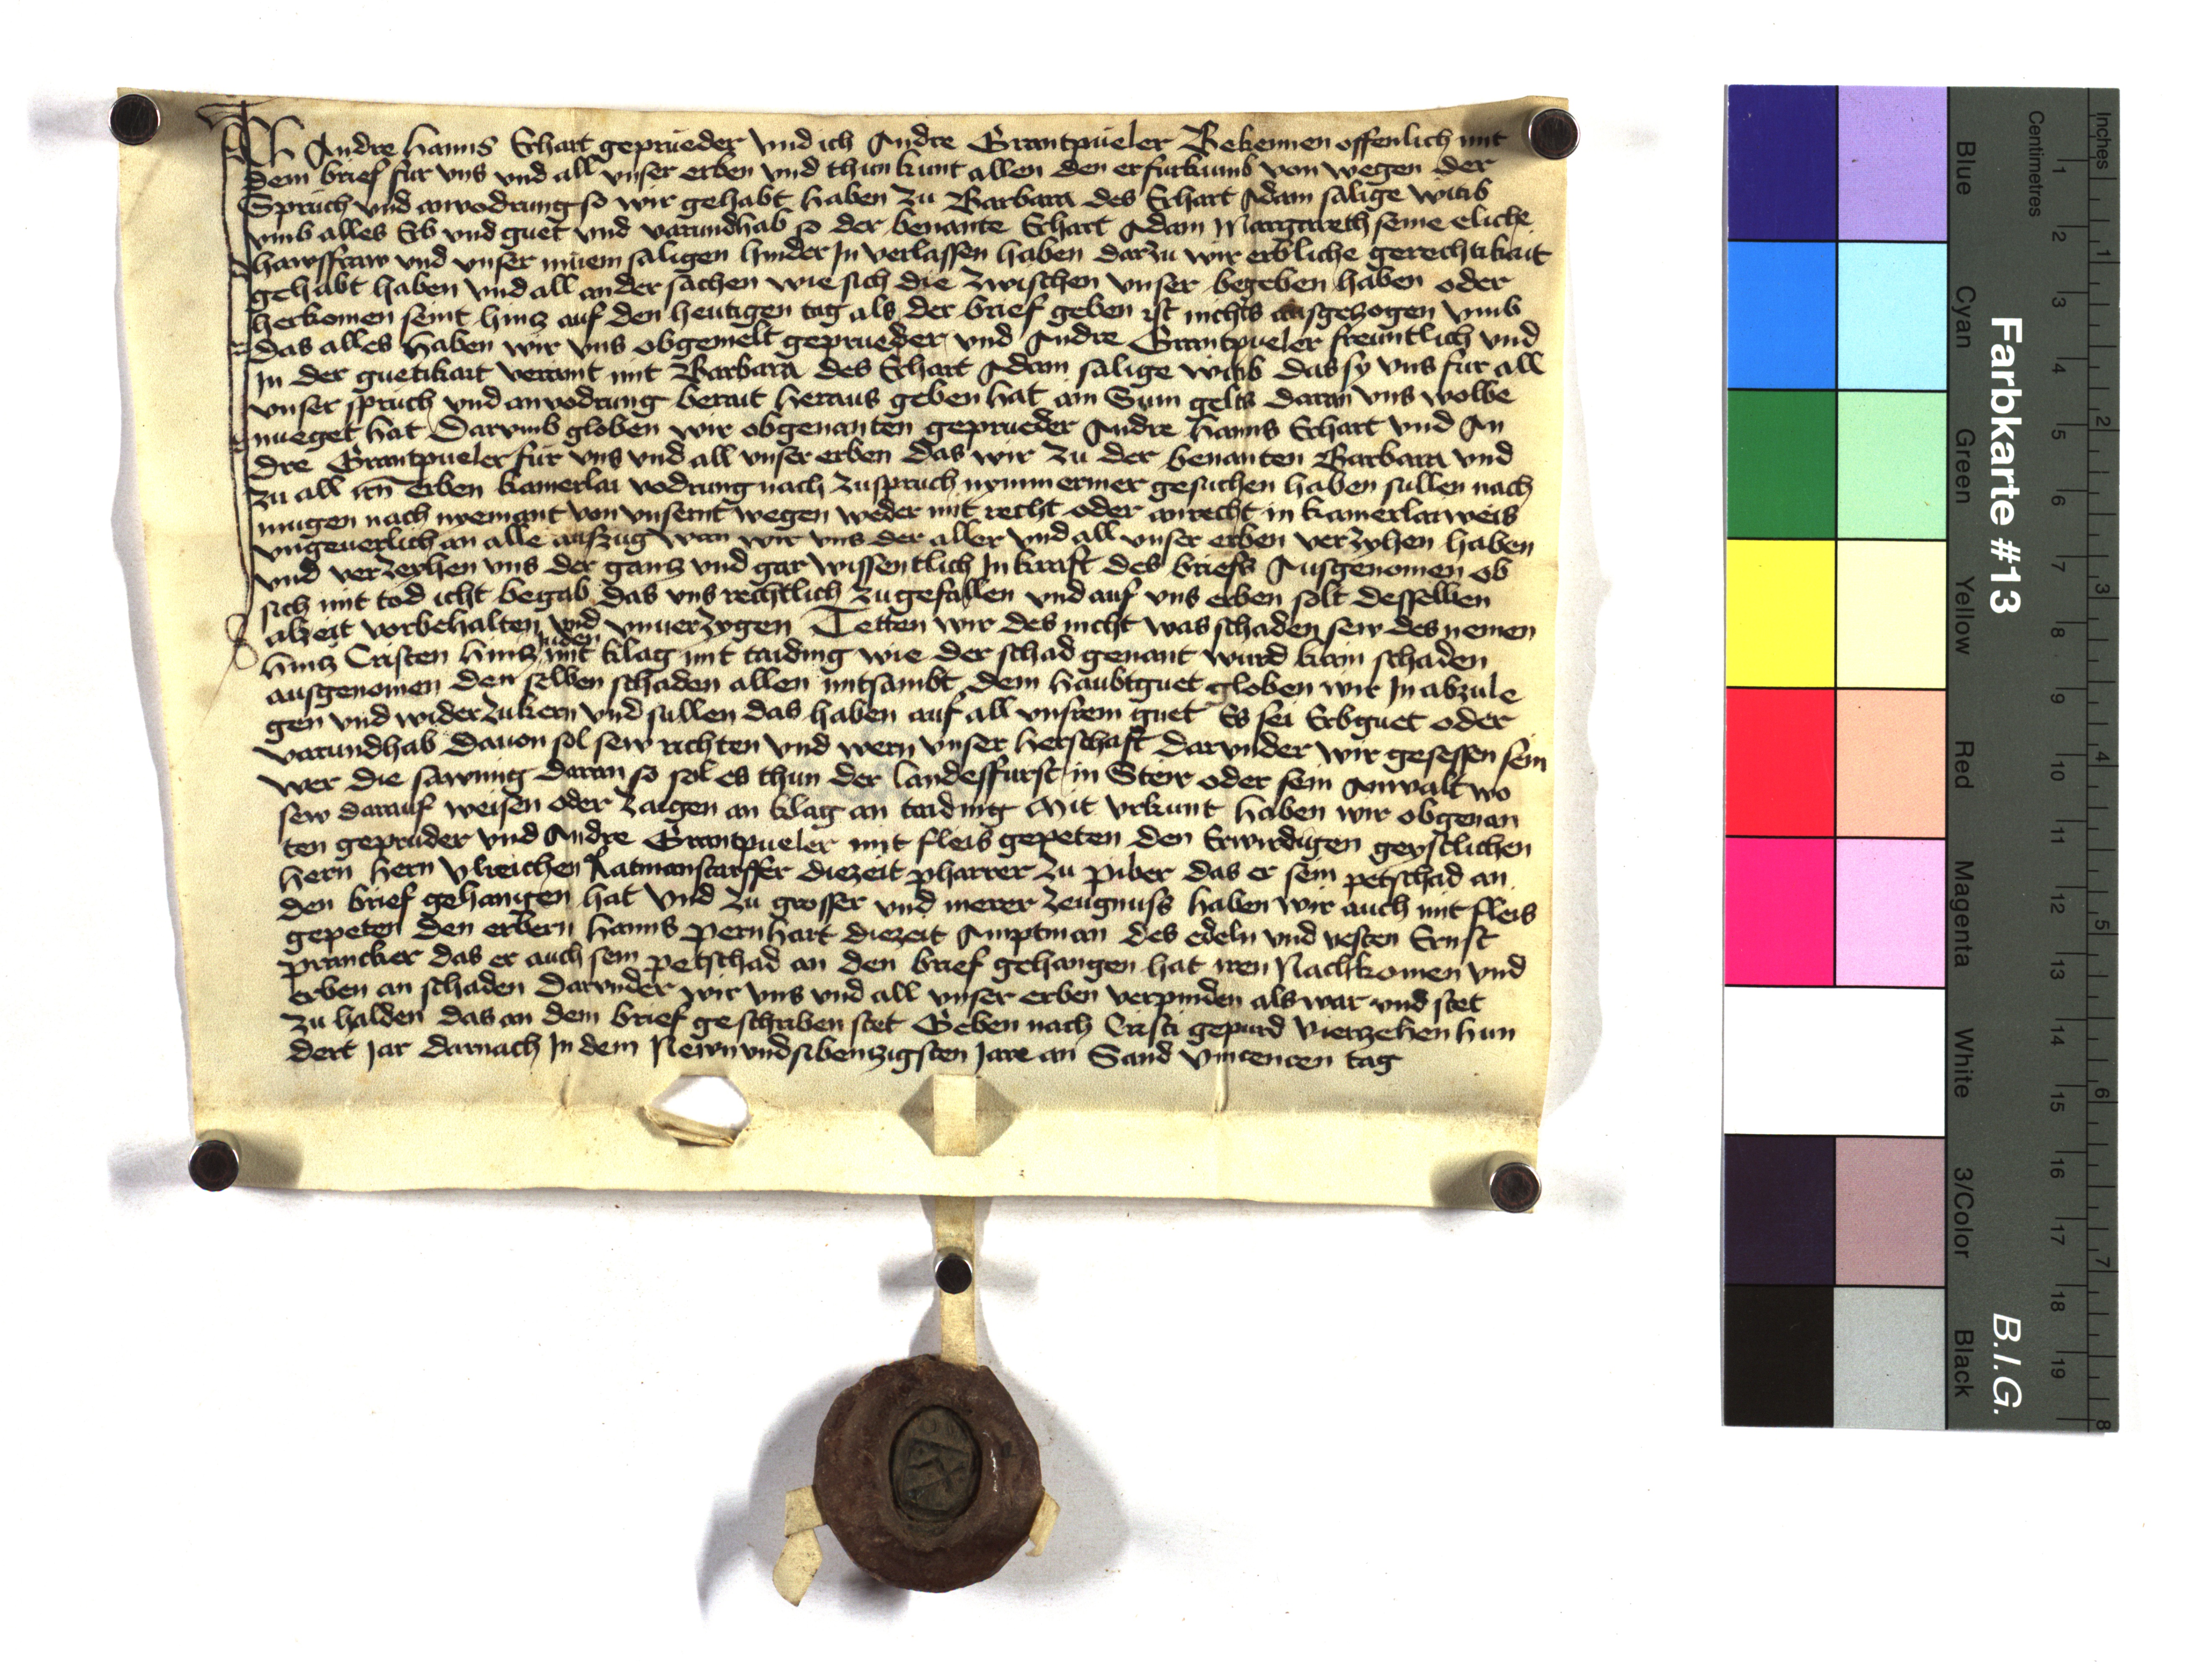 Ich Andre Hanns Schart geprueder vnd ich Andre Grantpueler Bekennen offenlich mit
dem brief fur vns vnd all vnser erben vnd thun kunt allen den er furkumb von wegen der
Spruch vnd anvodrung so wir gehabt haben zu Barbara des Schart Adam salige witib
vmb alles Erb vnd guet vnd varundhab so der benante Schart Adam Margareth seine eliche
hawsffraw vnd vnser muem saligen hinder In verlassen haben darzu wir erbliche gerechtikait
gehabt haben vnd all ander sachen wie sich die zwischen vnser begeben haben oder
herkomen seint hincz auf den heutigen tag als der brief geben ist nichts ausgezogen vmb
das alles haben wir vns obgemelt geprueder vnd Andre Grantpueler freuntlich vnd
In der guetikait veraint mit Barbara des Schart Adam salige witib das sy vns fur all
vnser spruch vnd anvodrung berait heraus geben hat ain Sum gelts daran vns wolbe
nueget hat Darvmb globen wir obgenanten geprueder Andre Hanns Schart vnd An
dre Grantpueler fur vns vnd all vnser erben das wir zu der benanten Barbara vnd
zu all irn erben kainerlai vodrung nach zuspruch nymmermer gesuchen haben sullen nach
mugen nach niemant von vnsernt wegen weder mit recht oder anrecht in kainerlai weis
vngeuerlich an alle auszug wan wir vns der aller vnd all vnser erben verzyhen haben
vnd verzeyhen vns der gancz vnd gar wissentlich In kraft des briefs Ausgenomen ob
sich mit tod icht begab das vns rechtlich zugefallen vnd auf vns erben solt desselben
alzeit vorbehalten vnd vnuerzygen Tetten wir des nicht was schaden sew des nemen
hincz Cristen hincz Juden mit klag mit taiding wie der schad genant wurd kain schaden
ausgenomen den selben schaden allen mitsambt dem haubtguet globen wir In abzule
gen vnd widerzukern vnd sullen das haben auf all vnsrem guet Es sei Erbguet oder
varundhab dauon sol sew richten vnd wern vnser herschaft darvnder wir gesessen sein
wer die sawmig daran so sol es thun der landesffurst in Steir oder sein Anwalt wo
sew darauf weisen oder zaigen an klag an taiding Mit vrkunt haben wir obgenan
ten gepruder vnd Andre Grantpueler mit fleis gepeten den Erwirdigen geystlichen
hern hern Vlreichen Ratmanstorffer diezeit pharrer zu piber das er sein petschad an
den brief gehangen hat vnd zu grosser vnd merer zeugnuss haben wir auch mit fleis
gepeten den erbern Hanns Pernhart diezeit Amptman des edeln vnd vesten Ernst
prancker das er auch sein petschad an den brief gehangen hat iren Nachkomen vnd
erben an schaden darvnder wir vns vnd all vnser erben verpinden als war vnd stet
zu halden das an dem brief geschriben stet Geben nach Cristi gepurd Vierzehen hun
dert Jar darnach In dem Newnvndsibenzigsten Jare an Sand Vincencen tag
Farbkarte #13
B.I.G.
Inches
1 2 3 4 5 6 7 8
Centimetres
1 2 3 4 5 6 7 8 9 10 11 12 13 14 15 16 17 18 19
Blue Cyan Green Yellow Red Magenta White 3/Color Black